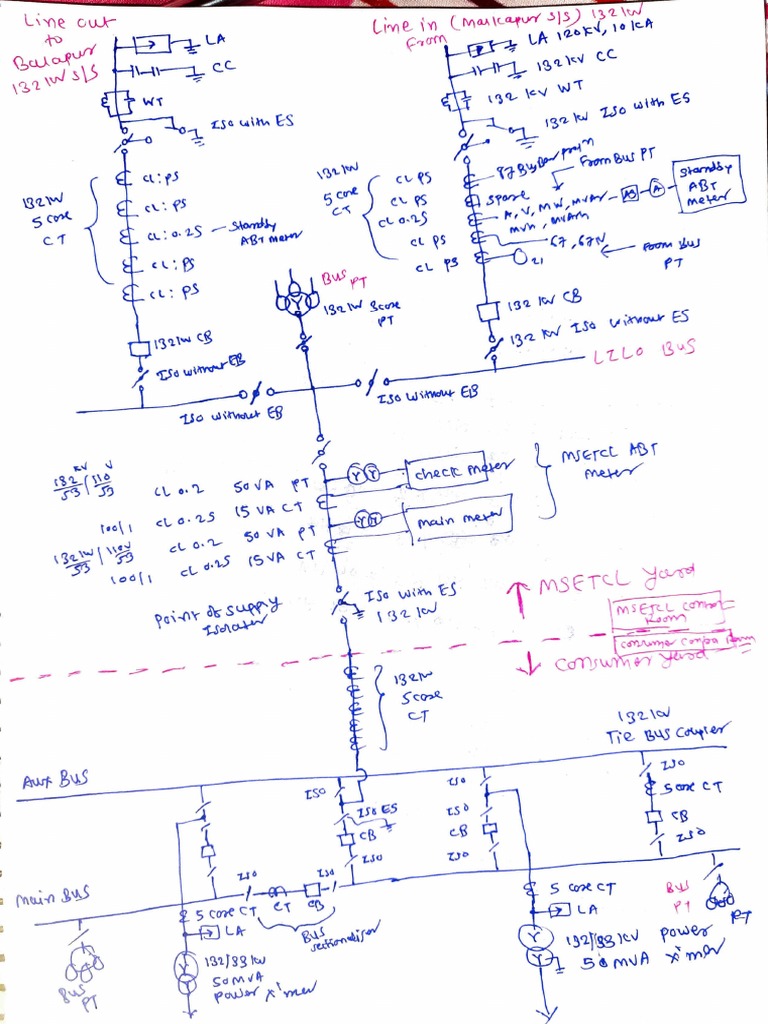 Line out
to
Balapur
132 kW S/S
LA
CC
WT
ISO with ES
132 kW
5 core
CT
CL: PS
CL: PS
CL: 0.2S
Standby
ABT meter
CL: PS
CL: PS
132 kW CB
ISO without EB
ISO without EB
Bus
PT
132 kW 3 core
PT
Line in (Malkapur S/S) 132 kW
From
LA 120 KV, 10 kA
132 kV CC
132 kV WT
132 kV ISO with ES
132 kW
5 core
CT
CL PS
CL PS
CL 0.2S
CL PS
CL PS
87 Bus Bar
From Bus PT
Spare
A, V, MW, MVAr
MVH, MVArh
A
Standby
ABT
meter
67, 67N
21
From Bus
PT
132 kV CB
132 kV ISO without ES
LILO BUS
ISO without EB
132 kV/√3 / 110 V/√3
CL 0.2 50 VA PT
100/1 CL 0.2S 15 VA CT
132 kW/√3 / 110V/√3
CL 0.2 50 VA PT
100/1 CL 0.2S 15 VA CT
check meter
main meter
MSETCL ABT
meter
Point of supply
Isolater
ISO with ES
132 kW
MSETCL Yard
MSETCL control
Room
consumer Room
consumer yard
132 kW
5 core
CT
132 kW
Tie Bus Coupler
Aux BUS
ISO
ISO ES
CB
ISO
ISO
ISO
CB
ISO
ISO
5 core CT
CB
ISO
Main Bus
ISO
CT
CB
ISO
Bus
sectionaliser
5 core CT
LA
132/33 kW
50 MVA
power x'mer
Bus
PT
5 core CT
LA
132/33 kV power
50 MVA x'mer
Bus
PT
PT